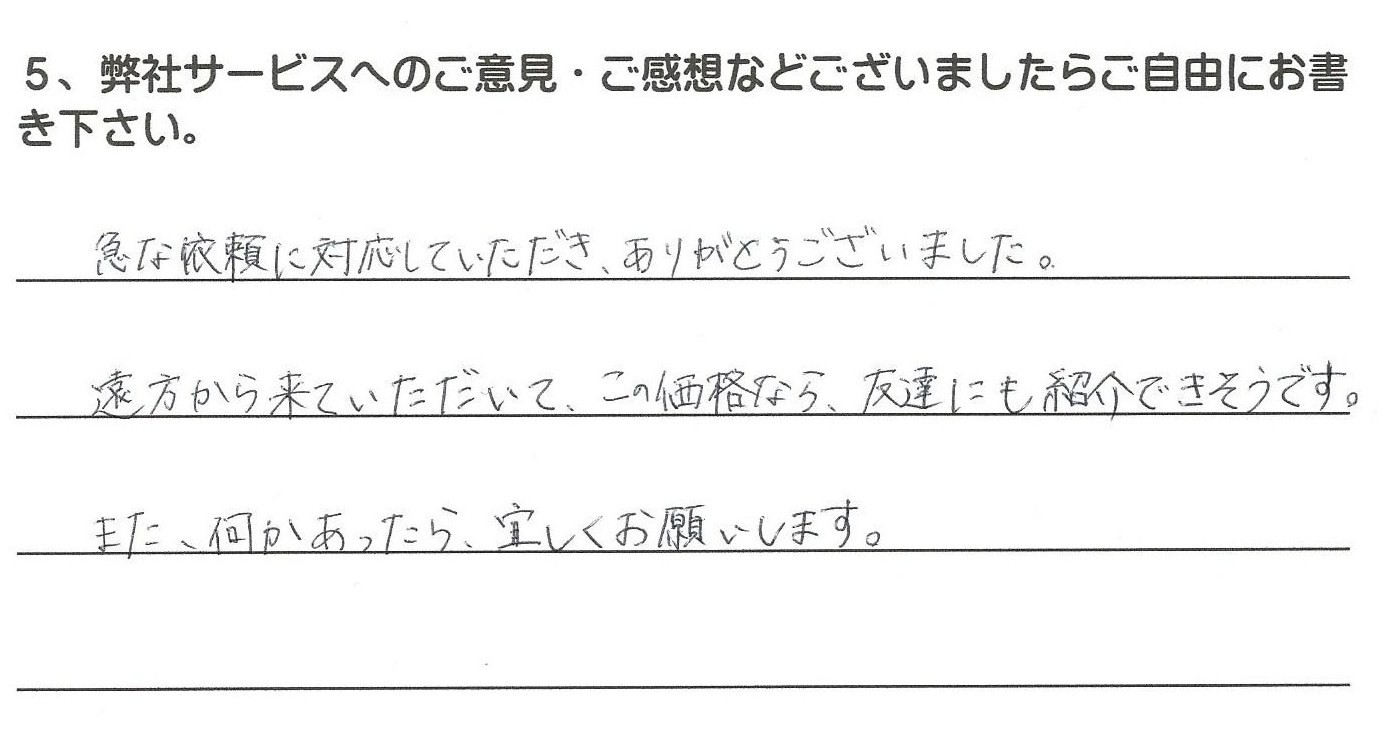 5、弊社サービスへのご意見・ご感想などございましたらご自由にお書
き下さい。
急な依頼に対応していただき、ありがとうございました。
遠方から来ていただいて、この価格なら、友達にも紹介できそうです。
また、何かあったら、宜しくお願いします。